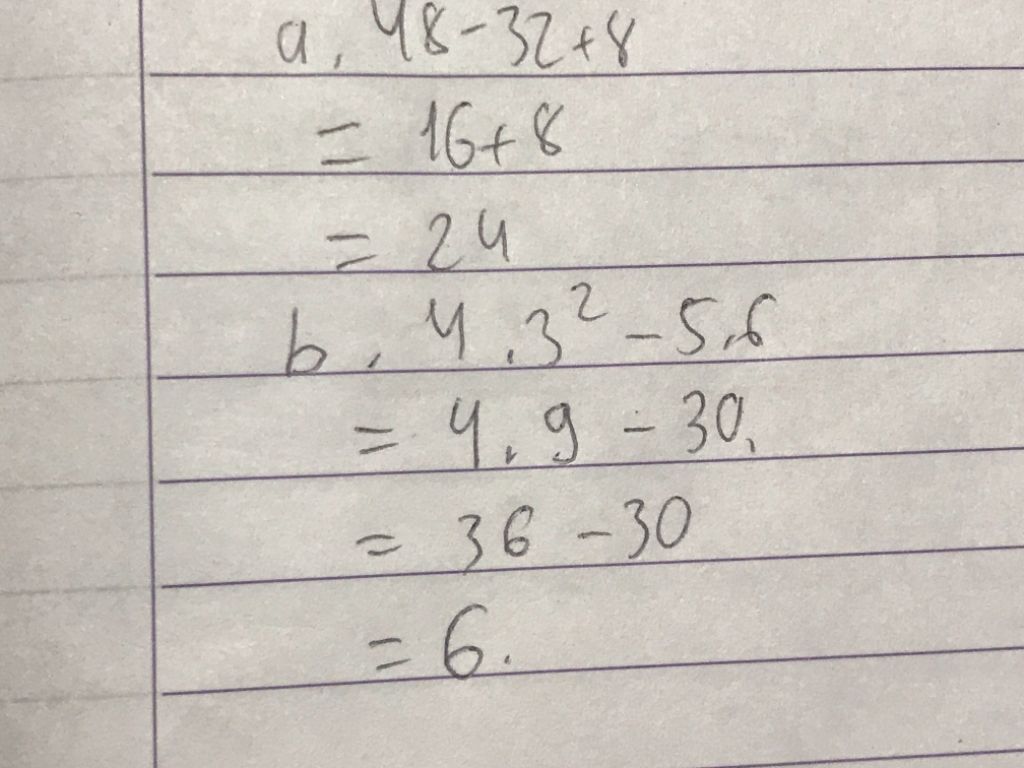 a. 48-32+8
= 16+8
= 24
b. 4.3² - 5.6
= 4.9 - 30.
= 36 - 30
= 6.